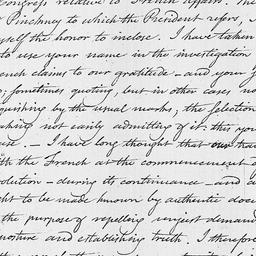 Congress relative to French Affairs. The
Pinckney to which the President refers, I
myself the honor to inclose. I have taken
to use your name in the investigation
ench claims to our gratitude – and your f
o; sometimes quoting, but in other cases no
nguishing by the usual marks; the selection
aking not easily admitting of it: this you
use. – I have long thought that our tra
ith the French at the commencement o
volution – during its continuance – and a
ght to be made known by authentic docu
the purpose of repelling unjust demand
posture and establishing truth. I therefore